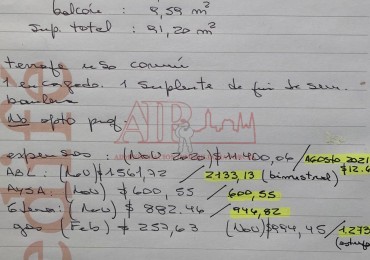 balcón : 9,59 m²
Sup. total : 91,20 m²
terraza uso común
1 encargado. 1 suplente de fin de sem.
baulera
No apto prof.
AIP
expensas : (Nov 2020) $11.400,06 / AGOSTO 2021 $12.6
ABL : (Nov) $1561,72 / 2133,13 (bimestral)
AySA : (Nov) $600,55 / 600,55
(Nov) $882.46 / 946,82
gas (Feb) $257,63 (Nov) $994,45 / 1.273